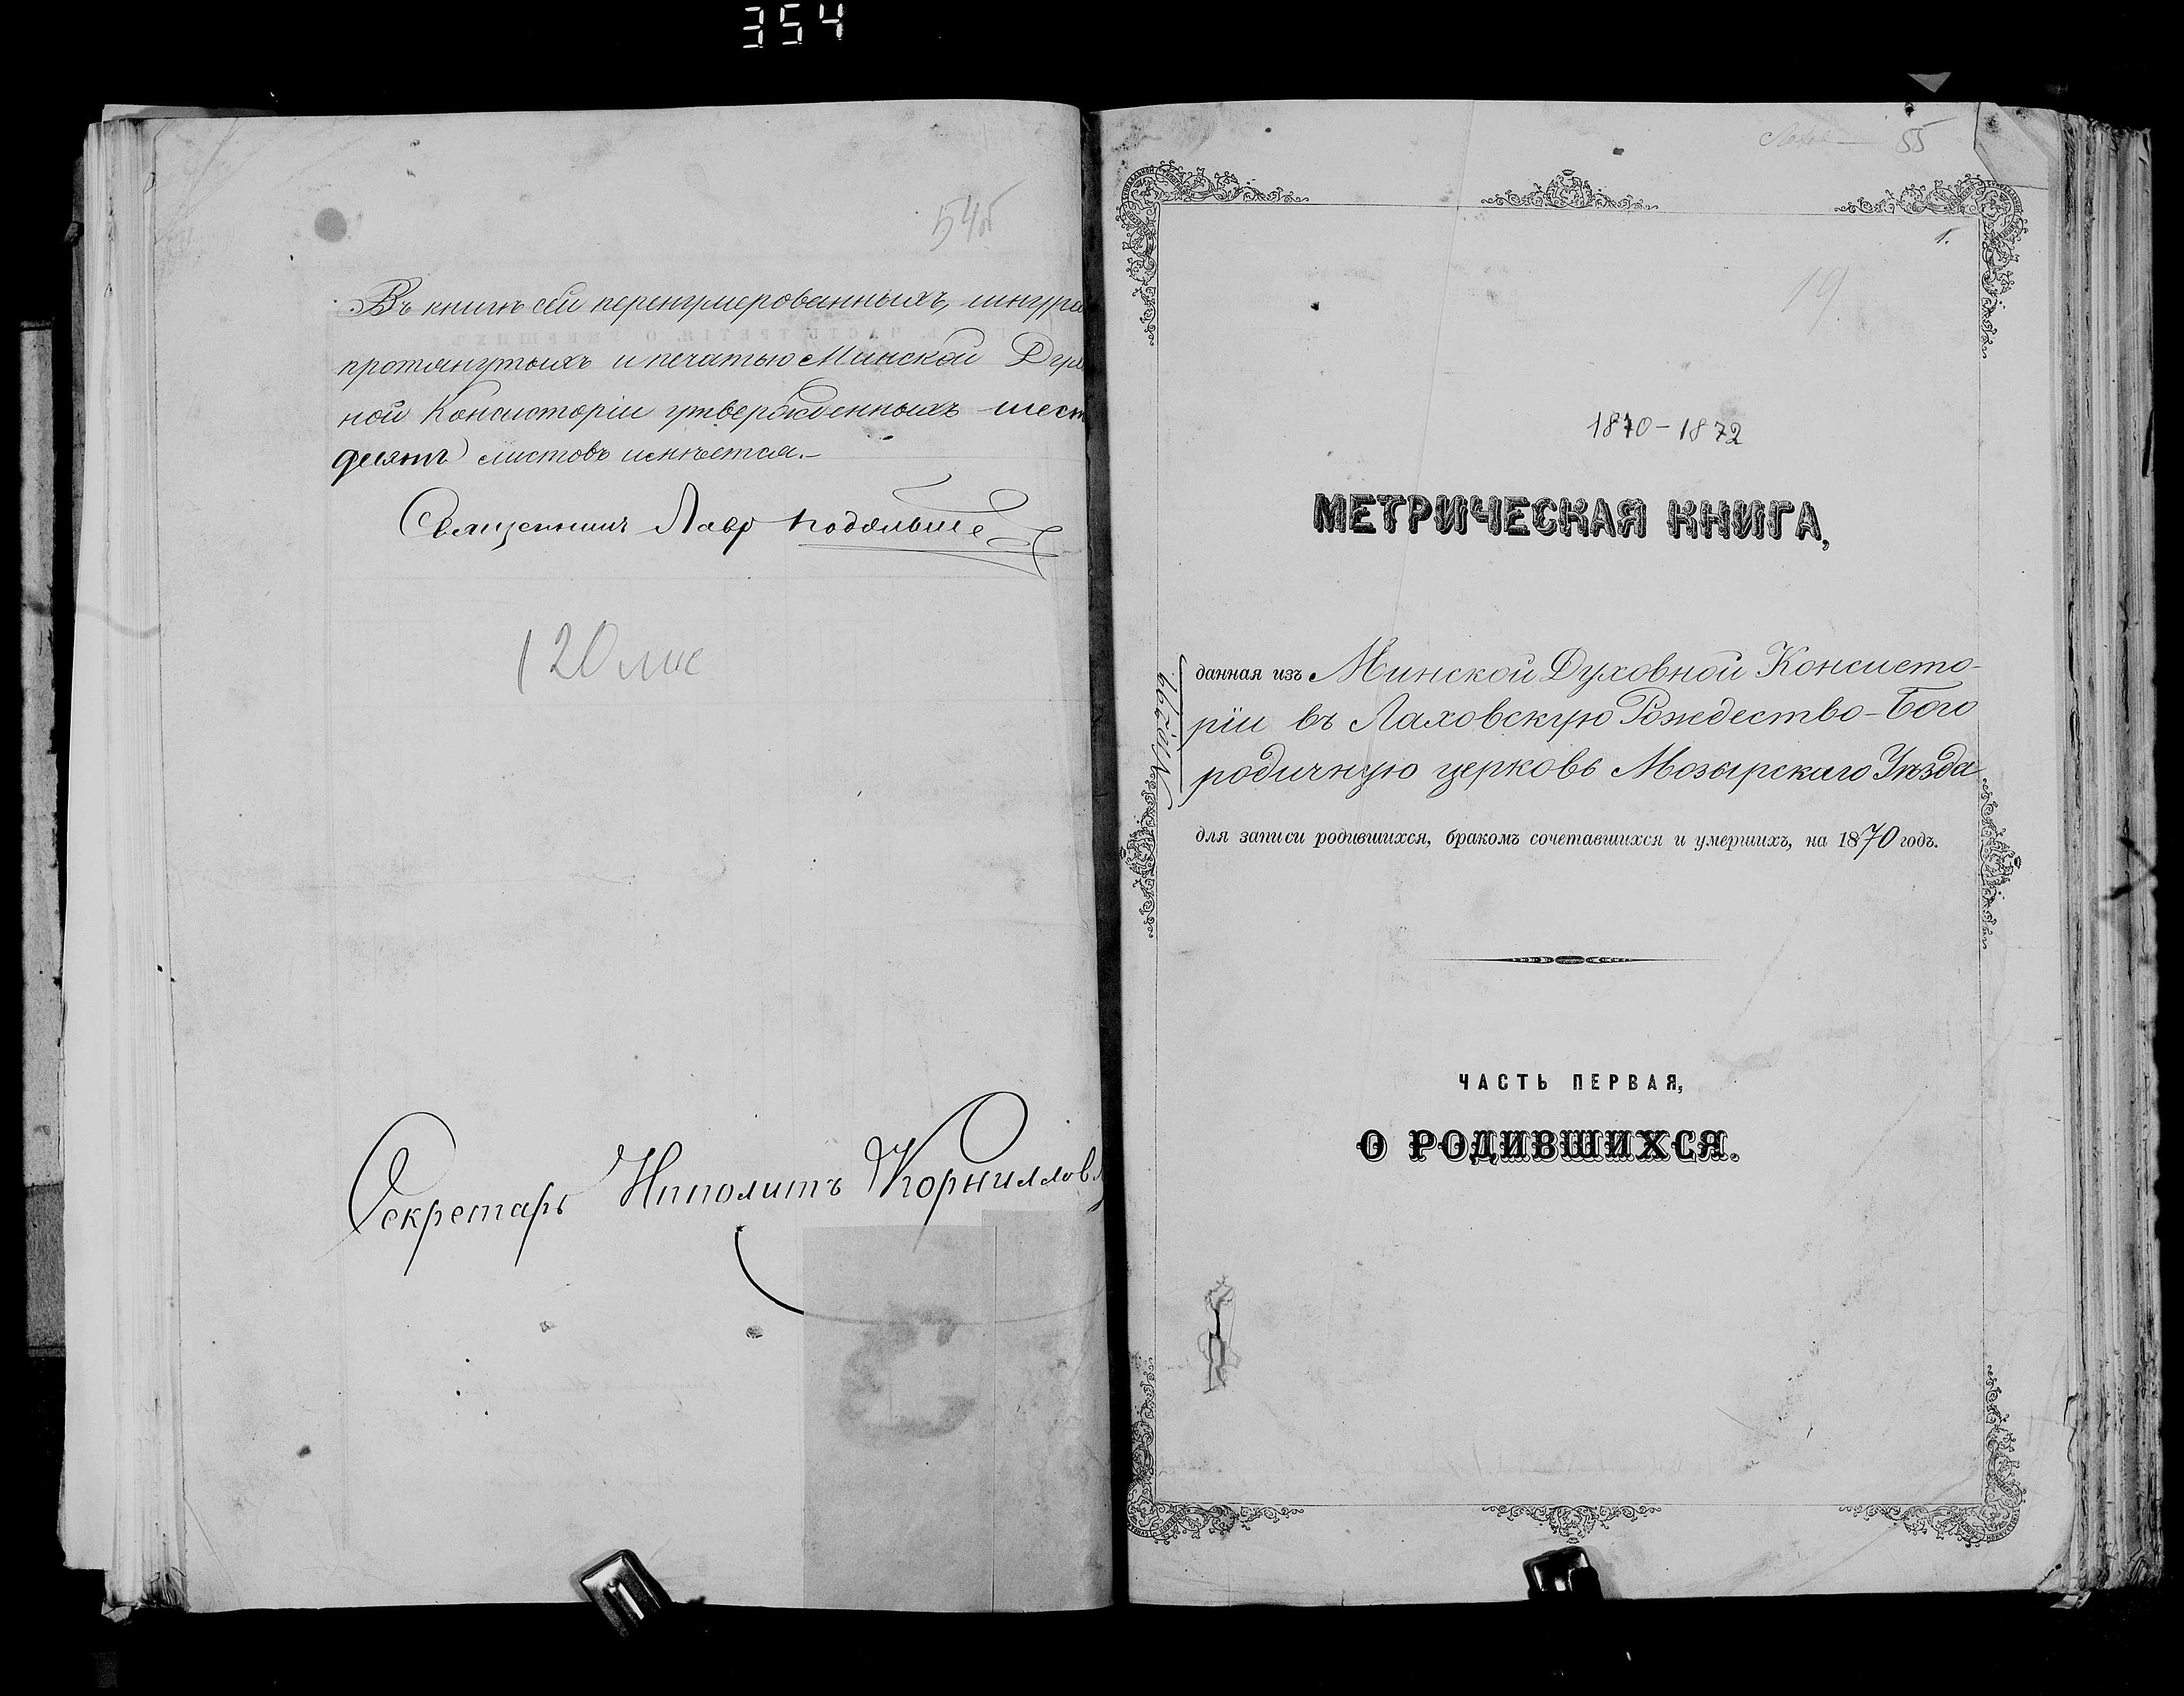 354
54об
Въ книгѣ сей перенумерованныхъ, шнуро
протянутыхъ и печатью Минской Духо
ной Консисторіи утвержденныхъ шест
десятъ листовъ имѣется.–
Священникъ Лавр
120 лис
Секретарь Ипполитъ Корниллов
55
1.
19
1870-1872
МЕТРИЧЕСКАЯ КНИГА,
данная изъ Минской Духовной Консисто-
ріи въ Лаховскую Рождество-Бого
родичную церковь Мозырскаго Уѣзда
для записи родившихся, бракомъ сочетавшихся и умершихъ, на 1870 годъ.
ЧАСТЬ ПЕРВАЯ,
О РОДИВШИХСЯ.